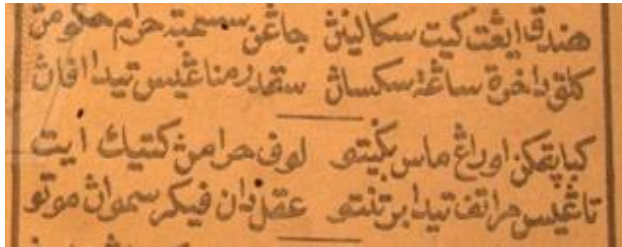 هندق ايڠت كيت سكالينڽ جاڠن سسمبه حرام حكومڽ
كلق داخرة ساڠة سكساڽ سقدر مناڠيس تيدا اڤاڽ
كباڽقكن اوراڠ ماس بݢيتو لوڤ حرامڽ كتيك ايت
تاڠيس مراتڤ تيدا برتنتو عقل دان فيكر سمواڽ موتو